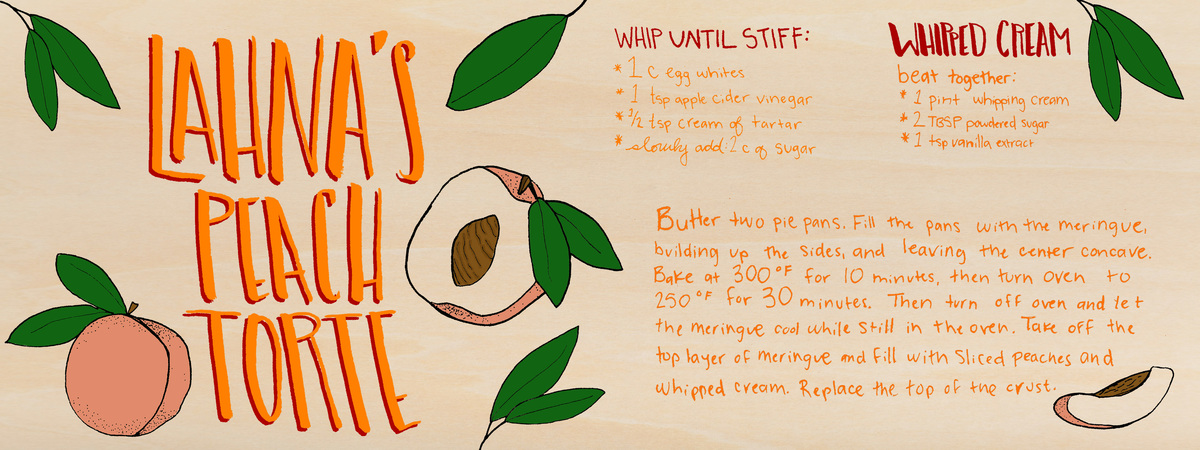 LAHNA'S
PEACH
TORTE
WHIP UNTIL STIFF:
* 1 c egg whites
* 1 tsp apple cider vinegar
* 1/2 tsp cream of tartar
* slowly add: 2 c of sugar
WHIPPED CREAM
beat together:
* 1 pint whipping cream
* 2 TBSP powdered sugar
* 1 tsp vanilla extract
Butter two pie pans. Fill the pans with the meringue,
building up the sides, and leaving the center concave.
Bake at 300°F for 10 minutes, then turn oven to
250°F for 30 minutes. Then turn off oven and let
the meringue cool while still in the oven. Take off the
top layer of meringue and fill with sliced peaches and
whipped cream. Replace the top of the crust.